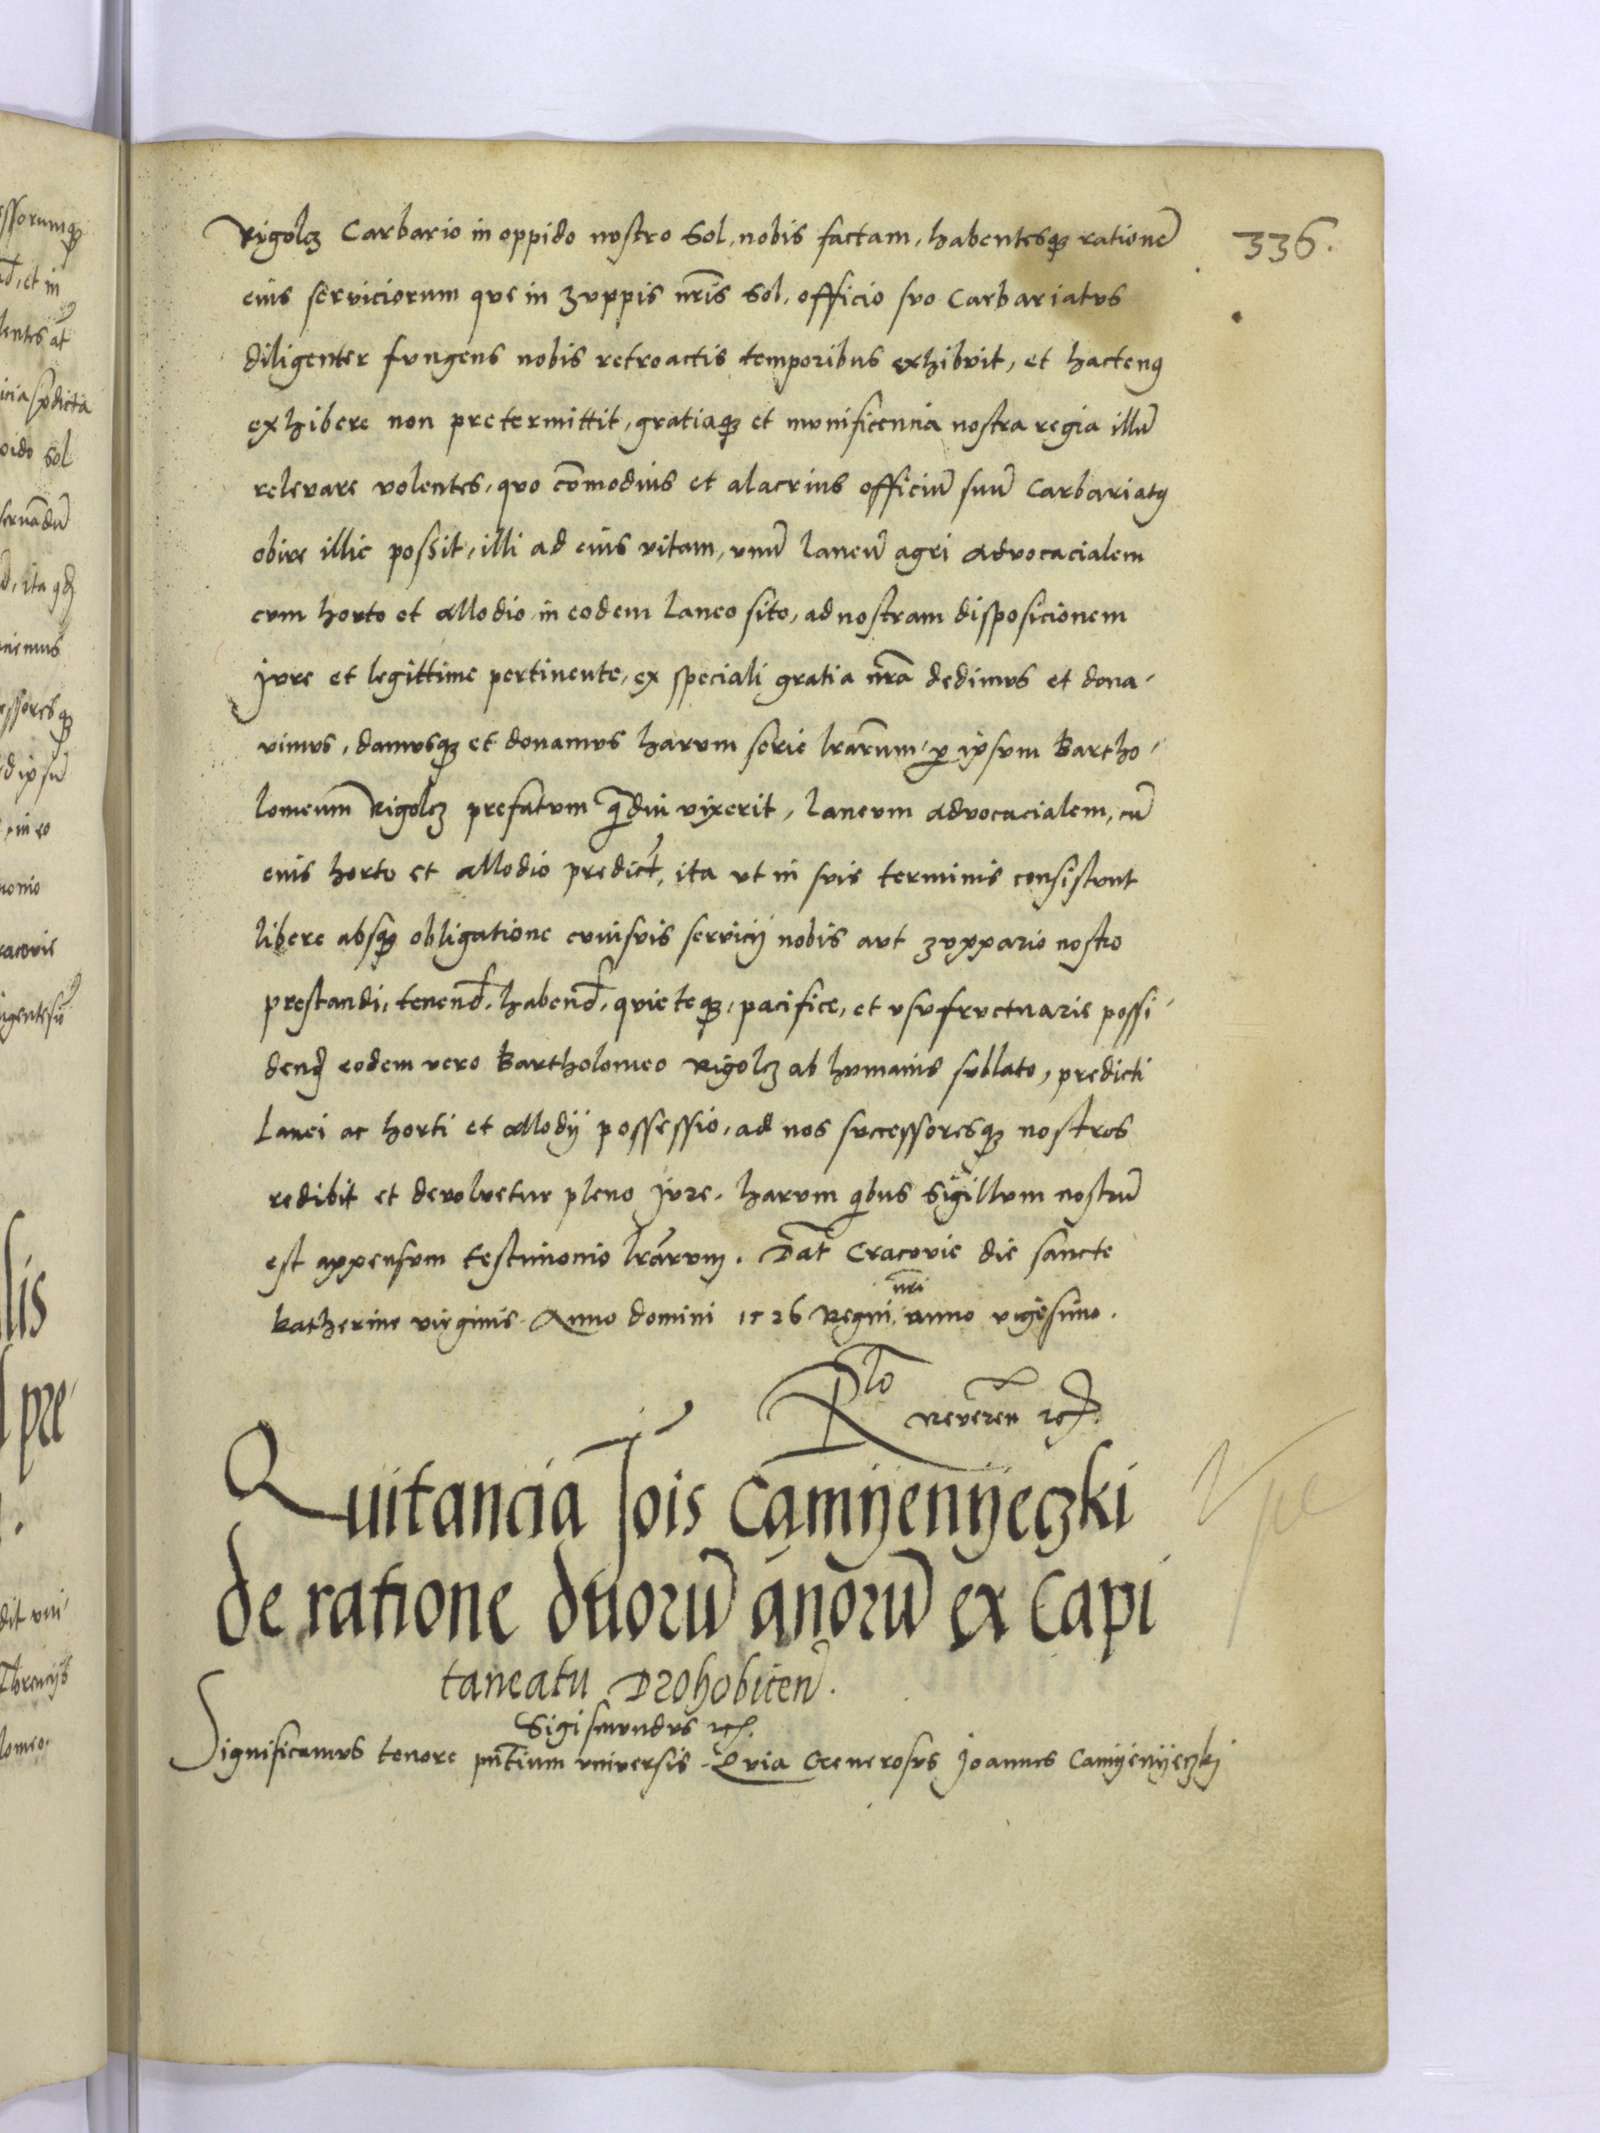 336.
Rigolcz Carbario in oppido nostro Sol, nobis factam, habentesq3 rationē
eius serviciorum que in zuppis nr̄is Sol, officio suo Carbariatus
diligenter fungens nobis retroactis temporibus exhibuit, et hacteng
exhibere non pretermittit, gratiaq3 et munificencia nostra regia illū
relevare volentes, quo cōmodius et alacrius officiū suū Carbariatg
obire illic possit, illi ad eius vitam, unū laneū agri advocacialem
cum horto et allodio in eodem laneo sito, ad nostram disposicionem
jure et legittime pertinente, ex speciali gratia nr̄a dedimus et dona-
vimus, damusq3 et donamus harum serie lrārum, p ipsum Bartho-
lomeum Rigolcz prefatum q̄diu vixerit, laneum advocacialem, cū
eius horto et allodio predict, ita ut in suis terminis consistunt
libere absq3 obligatione cuiusvis servicij nobis aut zuppario nostro
prestandi, tenend, habend, quieteq3, pacifice, et usufructuarie possi-
dend eodem vero Bartholomeo Rigolcz ab humanis sublato, predicti
lanei ac horti et allodij possessio, ad nos successoresq3 nostros
redibit et devolvetur pleno jure. harum qibus Sigillum nostrū
est appensum testimonio lrārum. Dat Cracovie die sancte
Katherine virginis Anno domini 1526 Regni nri anno vigesimo.
Rlo Reveren etc.
Quitancia Jois Camyenyeczki
de ratione duorū anorū ex Capi
taneatu Drohobiceñ.
Sigismundus etc.
Significamus tenore pn̄tium universis. Quia Generosus Joannes Camyenyeczkj